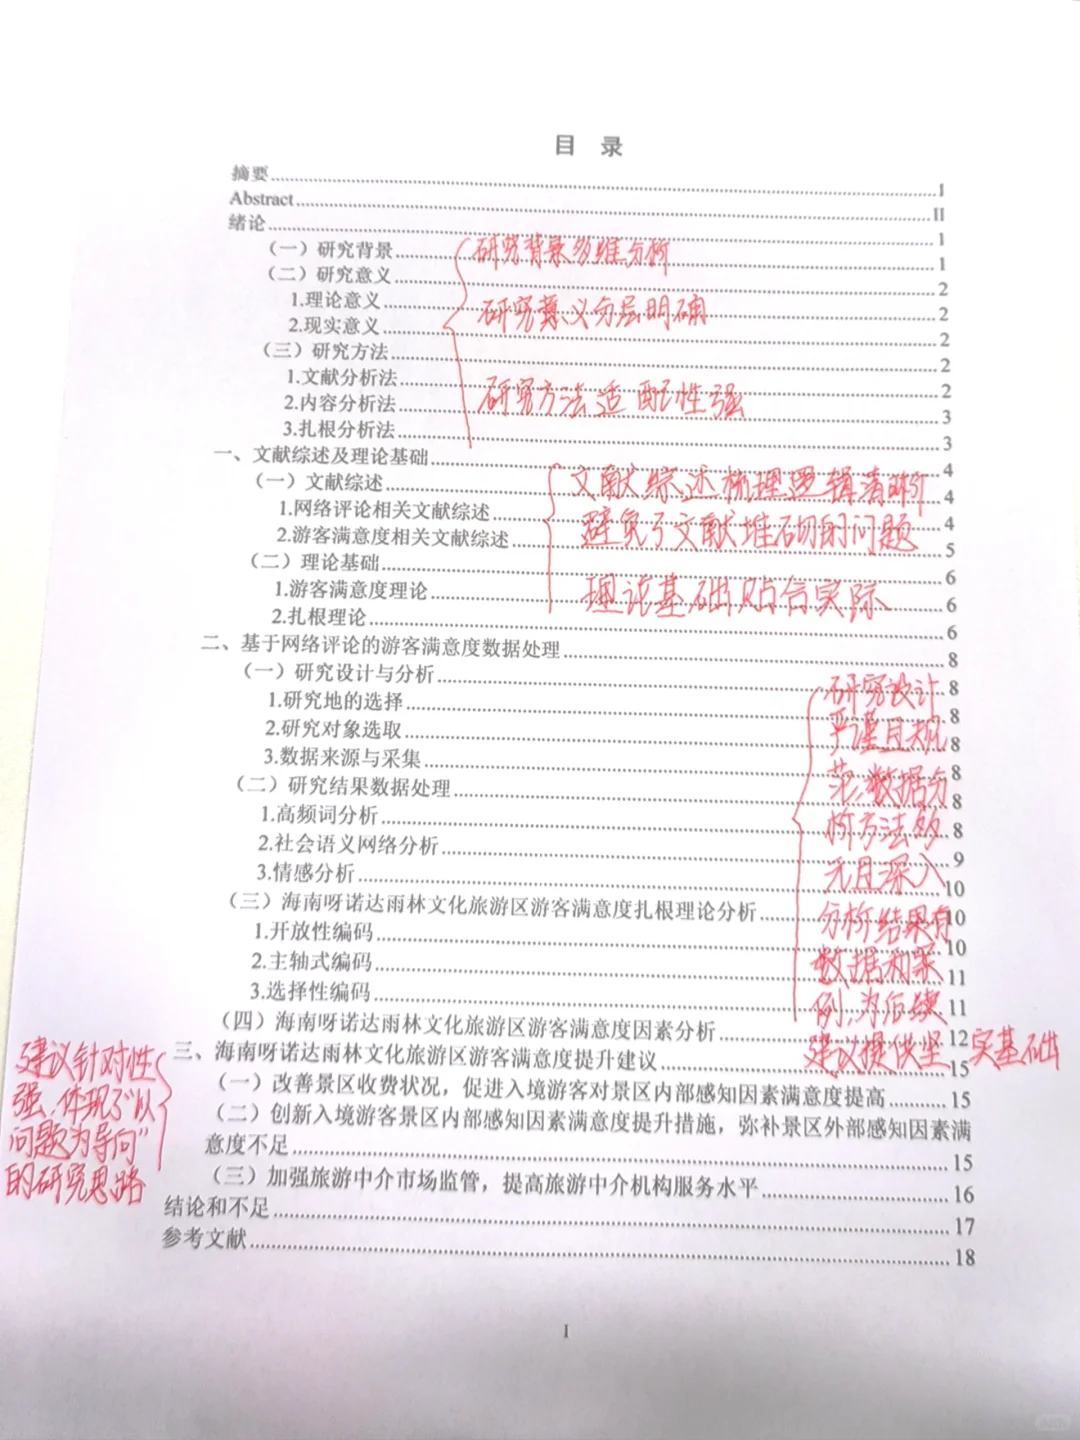 目 录
摘要 I
Abstract II
绪论 1
（一）研究背景 1
（二）研究意义 2
1.理论意义 2
2.现实意义 2
（三）研究方法 2
1.文献分析法 2
2.内容分析法 3
3.扎根分析法 3
一、文献综述及理论基础 4
（一）文献综述 4
1.网络评论相关文献综述 4
2.游客满意度相关文献综述 5
（二）理论基础 6
1.游客满意度理论 6
2.扎根理论 6
二、基于网络评论的游客满意度数据处理 8
（一）研究设计与分析 8
1.研究地的选择 8
2.研究对象选取 8
3.数据来源与采集 8
（二）研究结果数据处理 8
1.高频词分析 8
2.社会语义网络分析 9
3.情感分析 10
（三）海南呀诺达雨林文化旅游区游客满意度扎根理论分析 10
1.开放性编码 10
2.主轴式编码 11
3.选择性编码 11
（四）海南呀诺达雨林文化旅游区游客满意度因素分析 12
三、海南呀诺达雨林文化旅游区游客满意度提升建议 15
（一）改善景区收费状况，促进入境游客对景区内部感知因素满意度提高 15
（二）创新入境游客景区内部感知因素满意度提升措施，弥补景区外部感知因素满
意度不足 15
（三）加强旅游中介市场监管，提高旅游中介机构服务水平 16
结论和不足 17
参考文献 18
I
研究背景多维分析
研究意义分层明确
研究方法适配性强
文献综述梳理逻辑清晰
避免了文献堆砌的问题
理论基础贴合实际
研究设计
严谨且规
范,数据分
析方法多
元且深入
分析结果有
数据和案
例,为后续
建议提供坚实基础
建议针对性
强,体现了"以
问题为导向"
的研究思路